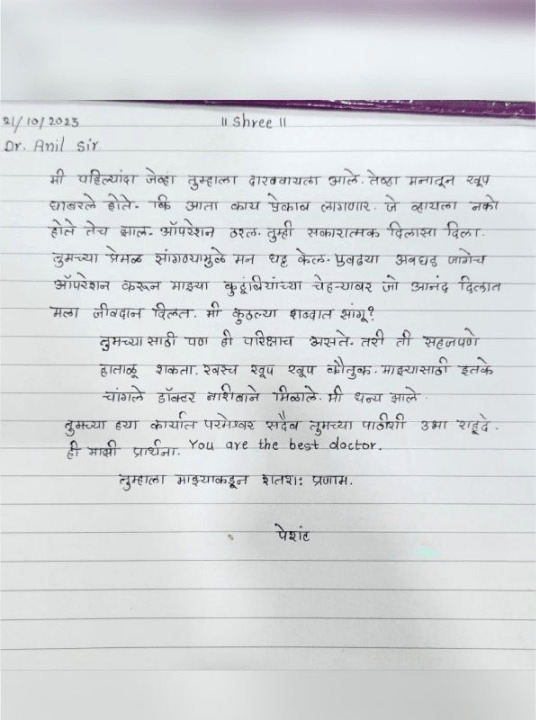 21/10/2023
॥ Shree ॥
Dr. Anil Sir
मी पहिल्यांदा जेव्हा तुम्हाला दाखवायला आले. तेव्हा मनातून खूप
घाबरले होते. कि आता काय ऐकाव लागणार. जे व्हायला नको
होते तेच झाल. ऑपरेशन ठरल. तुम्ही सकारात्मक दिलासा दिला.
तुमच्या प्रेमळ सांगण्यामुळे मन घट्ट केल. एवढया अवघड जागेच
ऑपरेशन करून माझ्या कुटूंबियांच्या चेहऱ्यावर जो आनंद दिलात
मला जीवदान दिलत. मी कुठल्या शब्दात सांगू?
तुमच्यासाठी पण ही परिक्षाच असते. तरी ती सहजपणे
हाताळू शकता. खरच खूप खूप कौतुक. माझ्यासाठी इतके
चांगले डॉक्टर नाशिवाने मिळाले. मी धन्य झाले.
तुमच्या हया कार्यात परमेश्वर सदैव तुमच्या पाठीशी उभा राहूदे.
ही माझी प्रार्थना. You are the best doctor.
तुम्हाला माझ्याकडून शतशः प्रणाम.
पेशंट